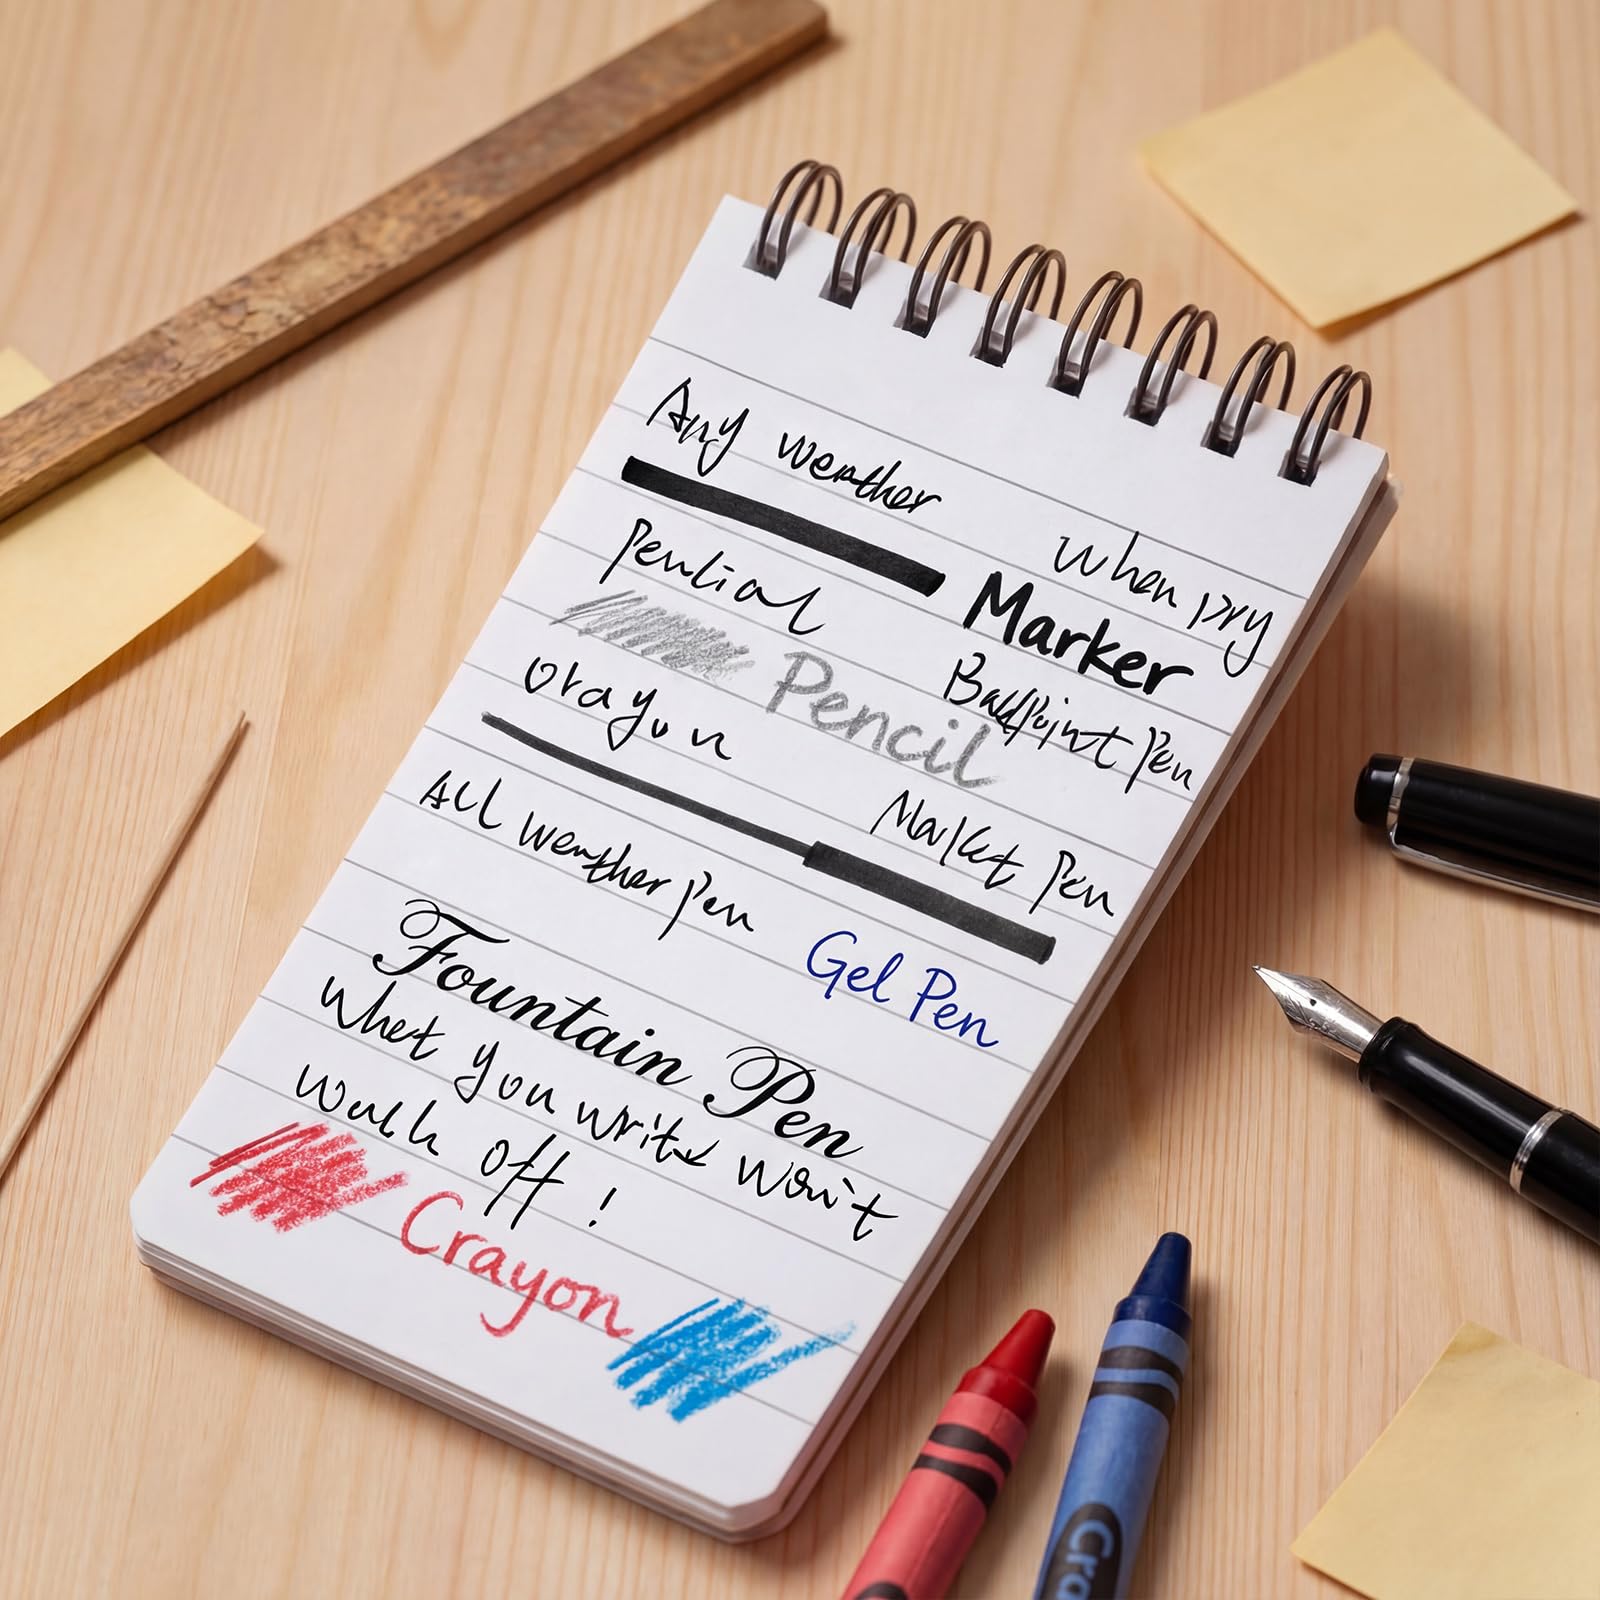 Any weather
When Dry
Marker
Pencil
BallPoint Pen
Crayon
Market Pen
All weather Pen
Gel Pen
Fountain Pen
What you write won't
off !
Crayon
Cra